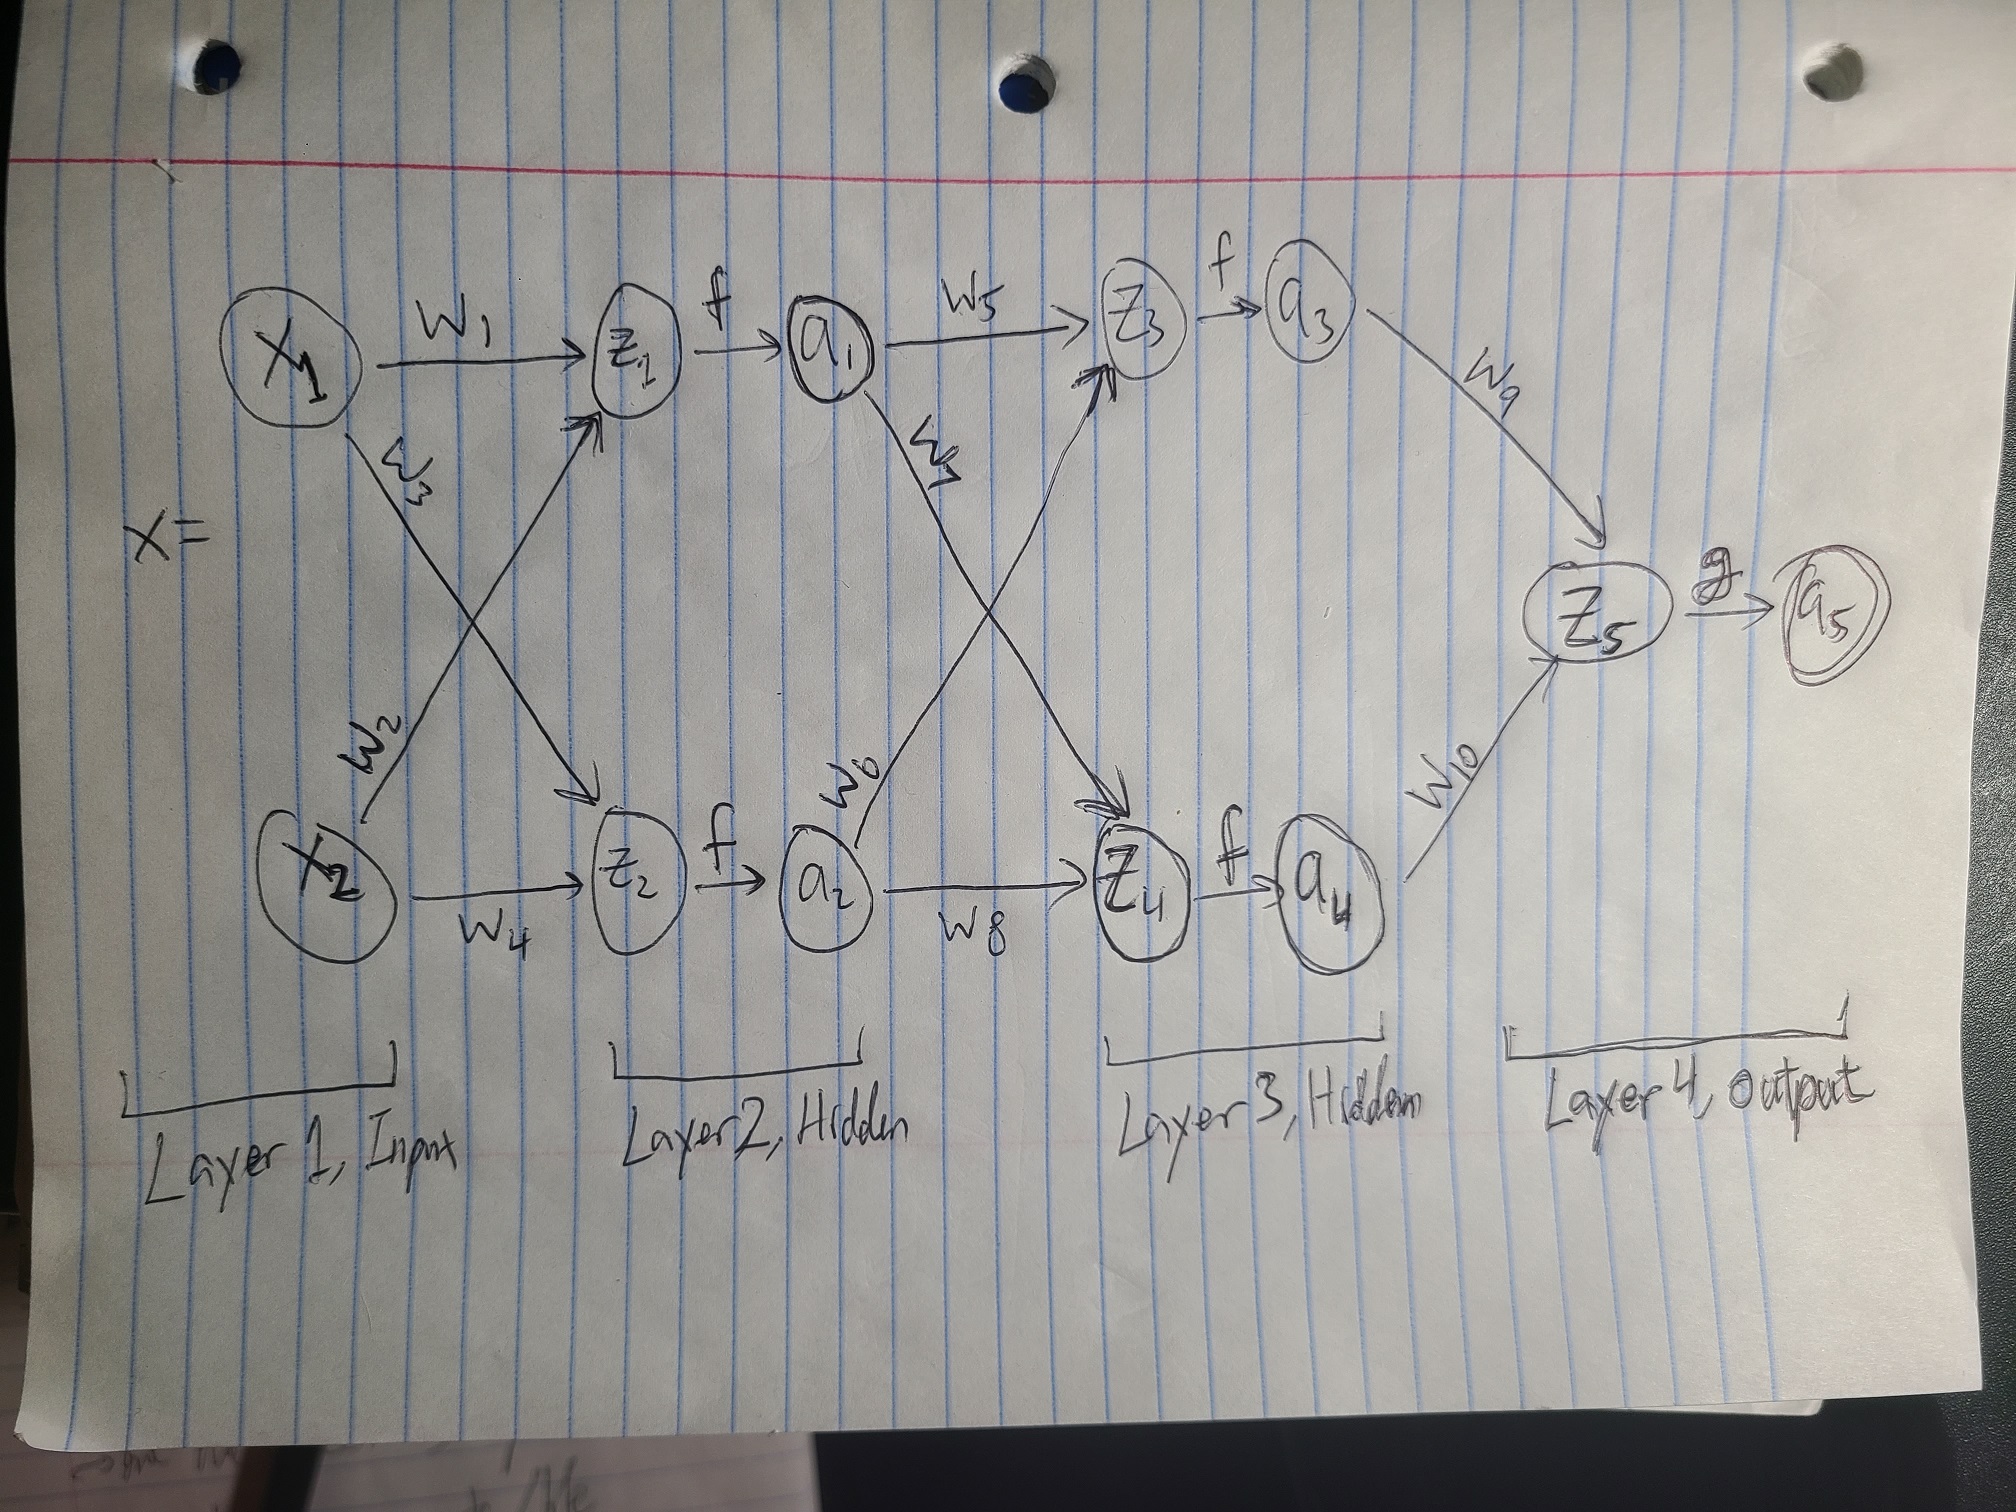 X₁ W₁ Z₁ f a₁ W₅ Z₃ f a₃
W₃ W₇ W₉
X= Z₅ g a₅
W₂ W₆ W₁₀
X₂ W₄ Z₂ f a₂ W₈ Z₄ f a₄
Layer 1, Input
Layer 2, Hidden
Layer 3, Hidden
Layer 4, Output